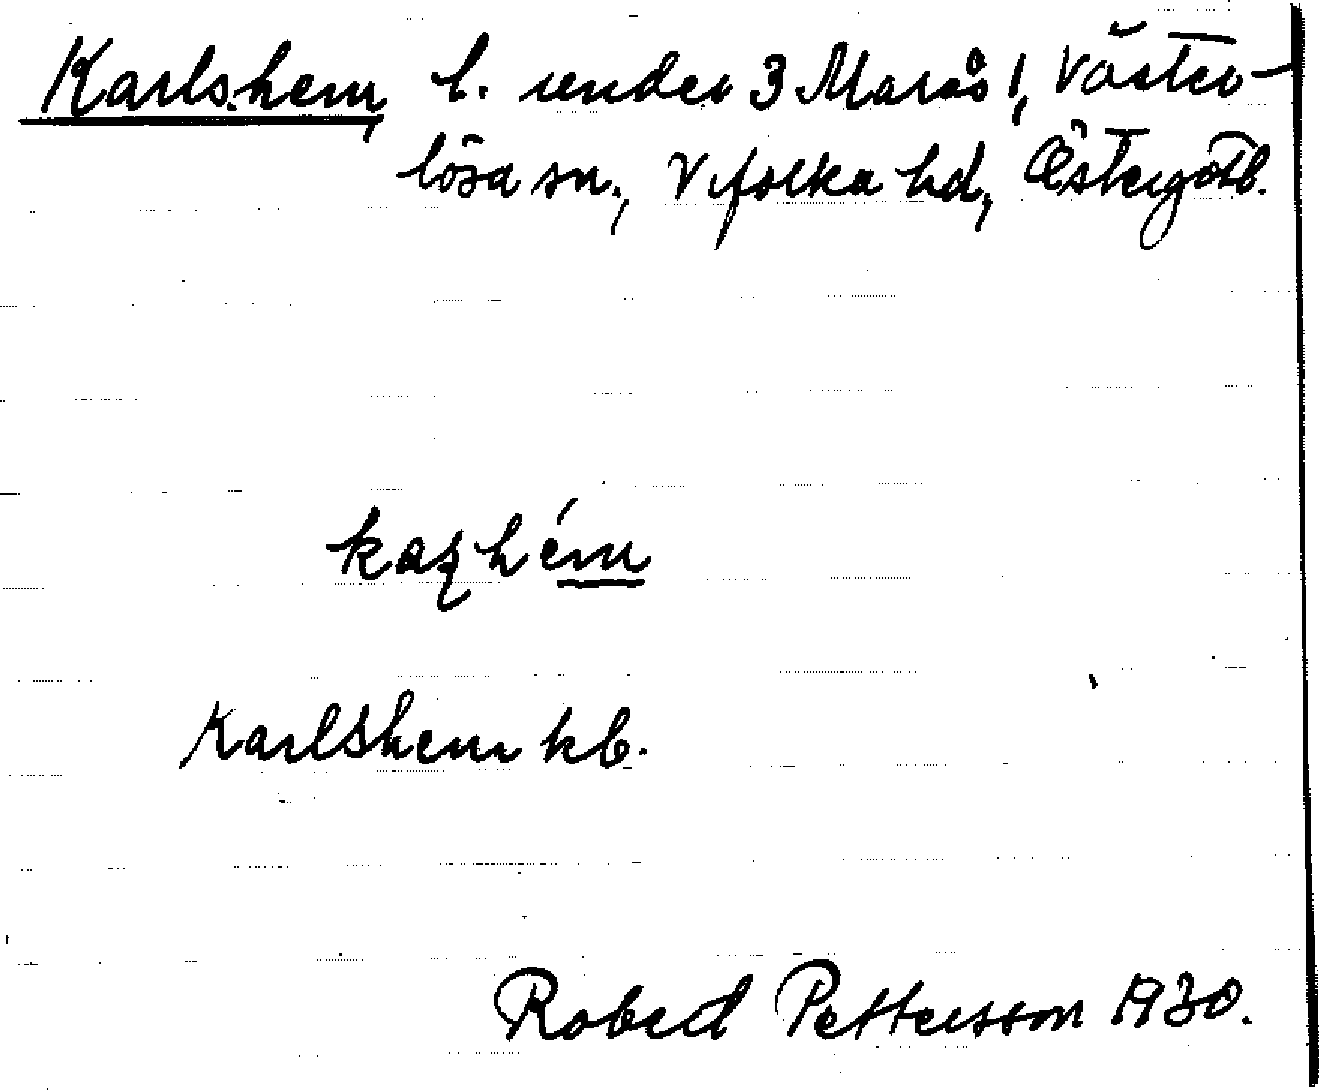 Karlshem, l. under 3 Marås!, Väster-
lösa sn., Vifolka hd, Östergötl.
hém
Karlshem kb.
Robert Pettersson 1930.